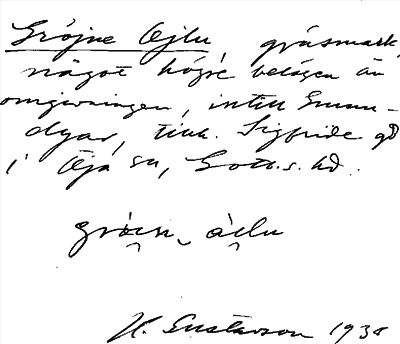 Gröjne Ojlu, gräsmark,
något högre belägen än
omgivningen, intill Emun-
dyar, tillh. Sigfride gd
i Öja sn, Gotl. s. hd.
H. Gustavson 1938